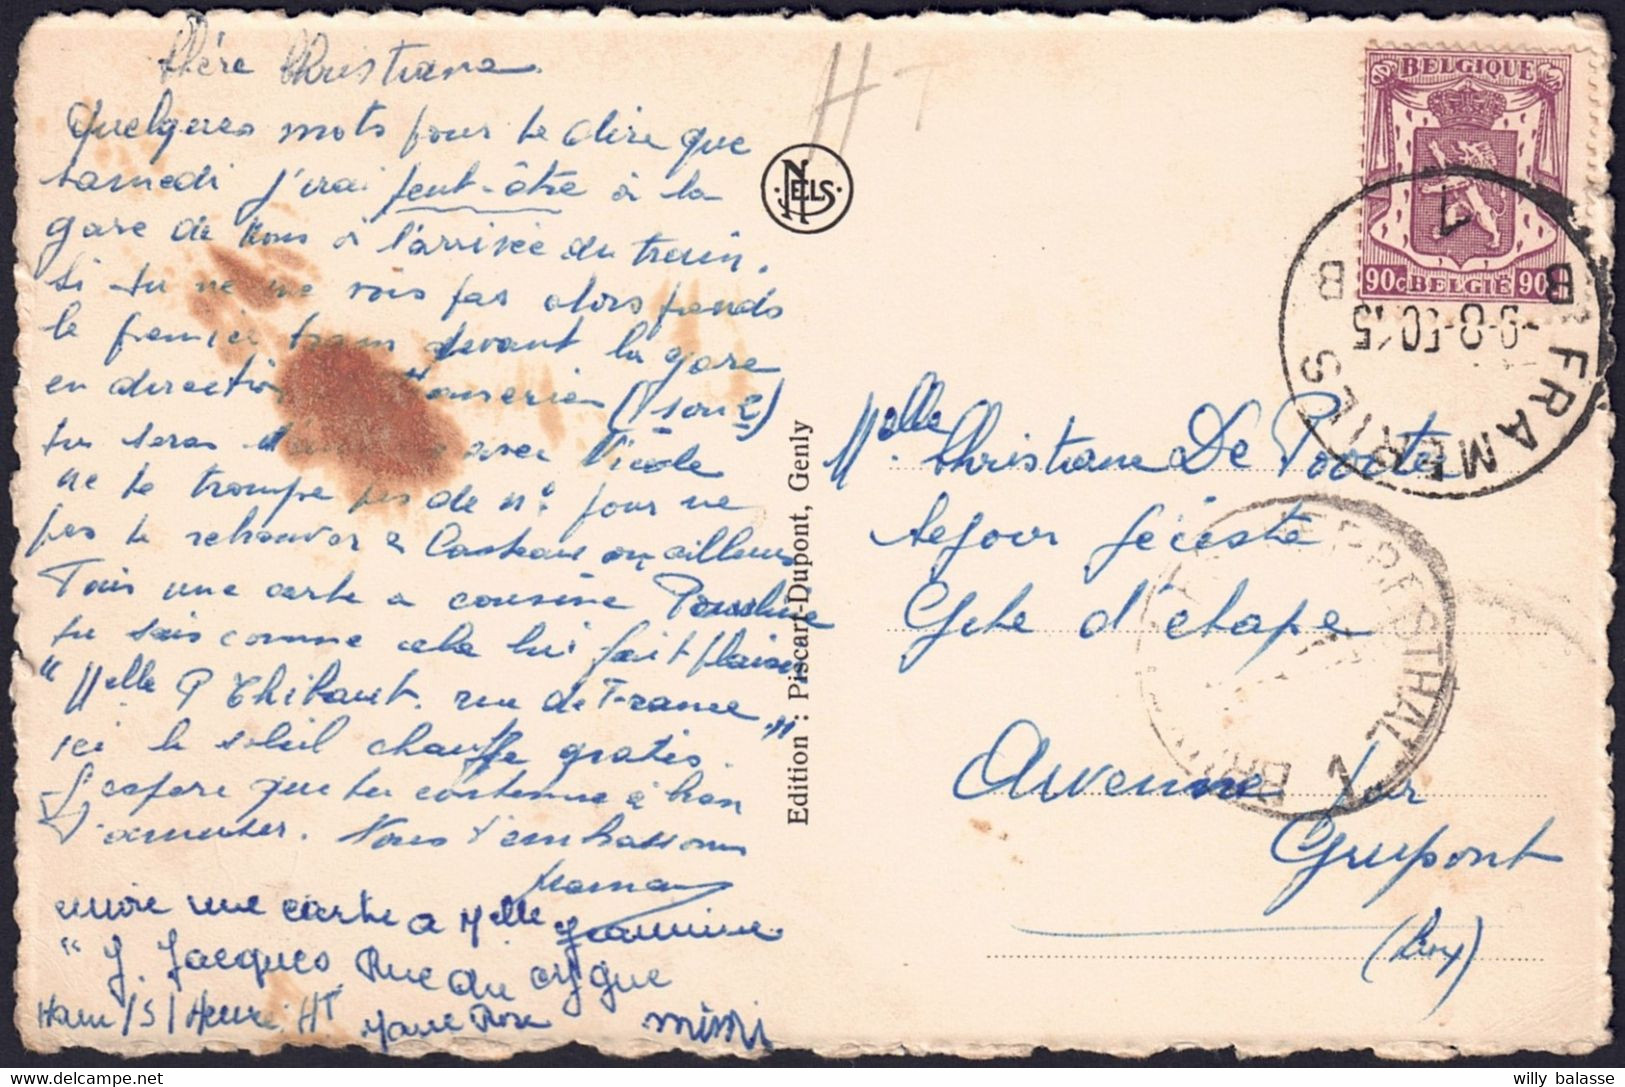 Chère Christiane
Quelques mots pour te dire que
samedi j'irai peut-être à la
gare de Mons à l'arrivée du train.
Si tu ne me vois pas alors prends
le premier tram devant la gare
en direction
tu seras avec Nicole
ne te trompe pas de n° pour ne
pas te retrouver à Casteau ou ailleurs
Fais une carte a cousine Pauline
tu sais comme cela lui fait plaisir
"Melle P Thibaut. rue de France"
ici le soleil chauffe gratis.
J'espère que tu continue à bien
t'amuser. Nous t'embrassons
Maman
encore une carte a Melle Jeannine
"J. Jacques Rue du Cygne
Ham/S/Heure Ht Marie Rose mimi
HT
NELS
Edition : Piscart-Dupont, Genly
BELGIQUE
90c BELGIË 90c
B FRAMERIES B
-9-8-50.15
Melle Christiane De
Séjour
Gîte d'étape
Awenne par
Grupont
(Lux)